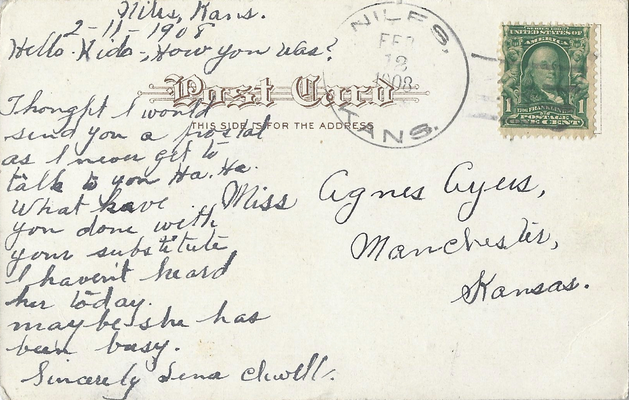 Niles, Kans.
2-11-1908
Hello Kido-, How you was?
NILES,
FEB
12
1908
KANS.
UNITED STATES OF AMERICA
1
POSTAGE
ONE CENT
Post Card
THIS SIDE IS FOR THE ADDRESS
Thought I would
send you a postal
as I never get to
talk to you Ha. Ha.
What have
you done with
your substitute
I haven't heard
her today.
maybe she has
been busy.
Sincerely Lena
Miss Agnes Ayers,
Manchester,
Kansas.